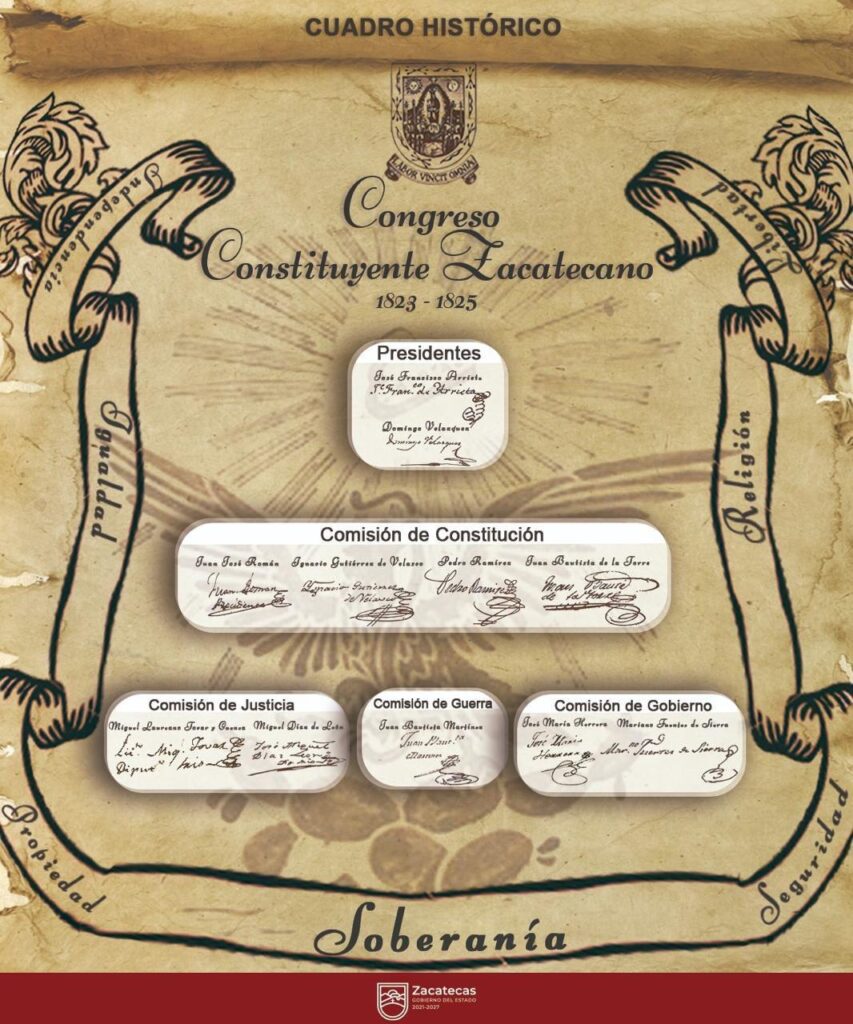 CUADRO HISTÓRICO
LABOR VINCIT OMNIA
Congreso
Constituyente Zacatecano
1823 - 1825
Independencia
Libertad
Igualdad
Religión
Presidentes
José Francisco Arrieta
J.e Fran.co de Arrieta
Domingo Velazquez
Domingo Velazquez
Comisión de Constitución
Juan José Román Ignacio Gutiérrez de Velasco Pedro Ramírez Juan Bautista de la Torre
Juan Roman Ygnacio Gutierrez Pedro Ramirez Juan Bautta
Presidente de Velasco de la Torre
Comisión de Justicia
Miguel Laureano Tovar y Cuenca Miguel Díaz de León
Lic.o Mig.l Tovar José Miguel
Díaz Leon
Comisión de Guerra
Juan Bautista Martínez
Juan Baut.ta
Martinez
Comisión de Gobierno
José María Herrera Mariano Fuentes de Sierra
José Maria
Herrera Mar.no Fuentes de Sierra
Propiedad
Seguridad
Soberanía
Zacatecas
GOBIERNO DEL ESTADO
2021-2027